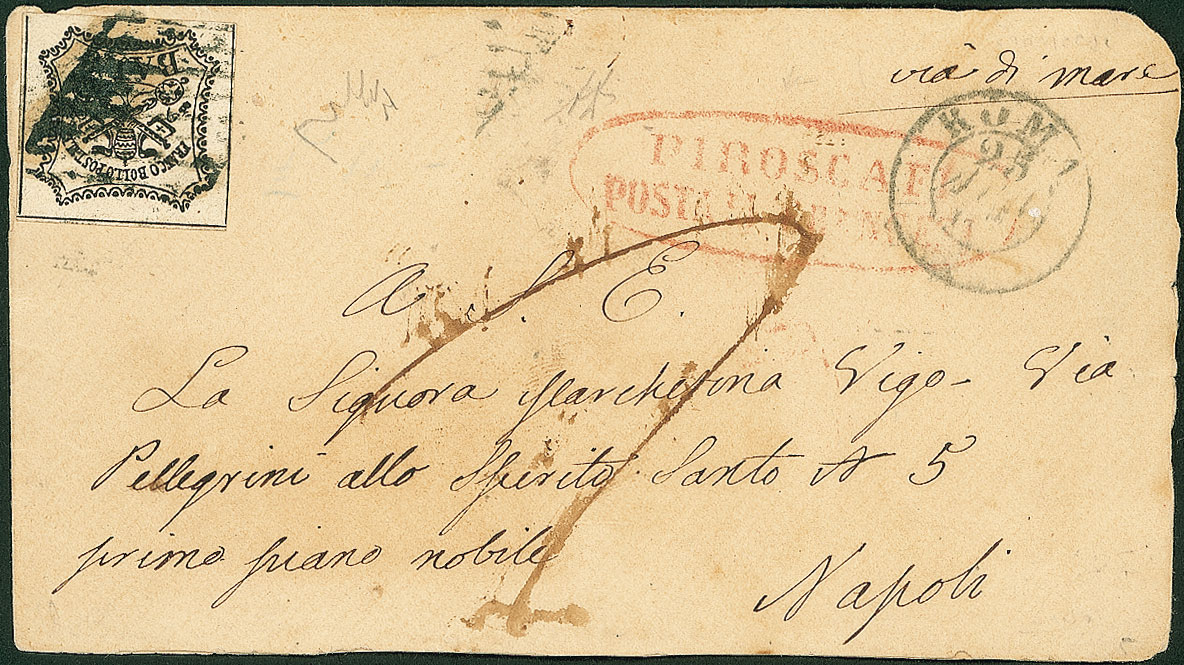 BAJ
FRANCO BOLLO POSTALE
via di mare
ROMA
25
PIROSCAFI
POSTALI FRANCESI
A S. E.
La Signora Marchesina Vigo - Via
Pellegrini allo Spirito Santo N 5
primo piano nobile
Napoli